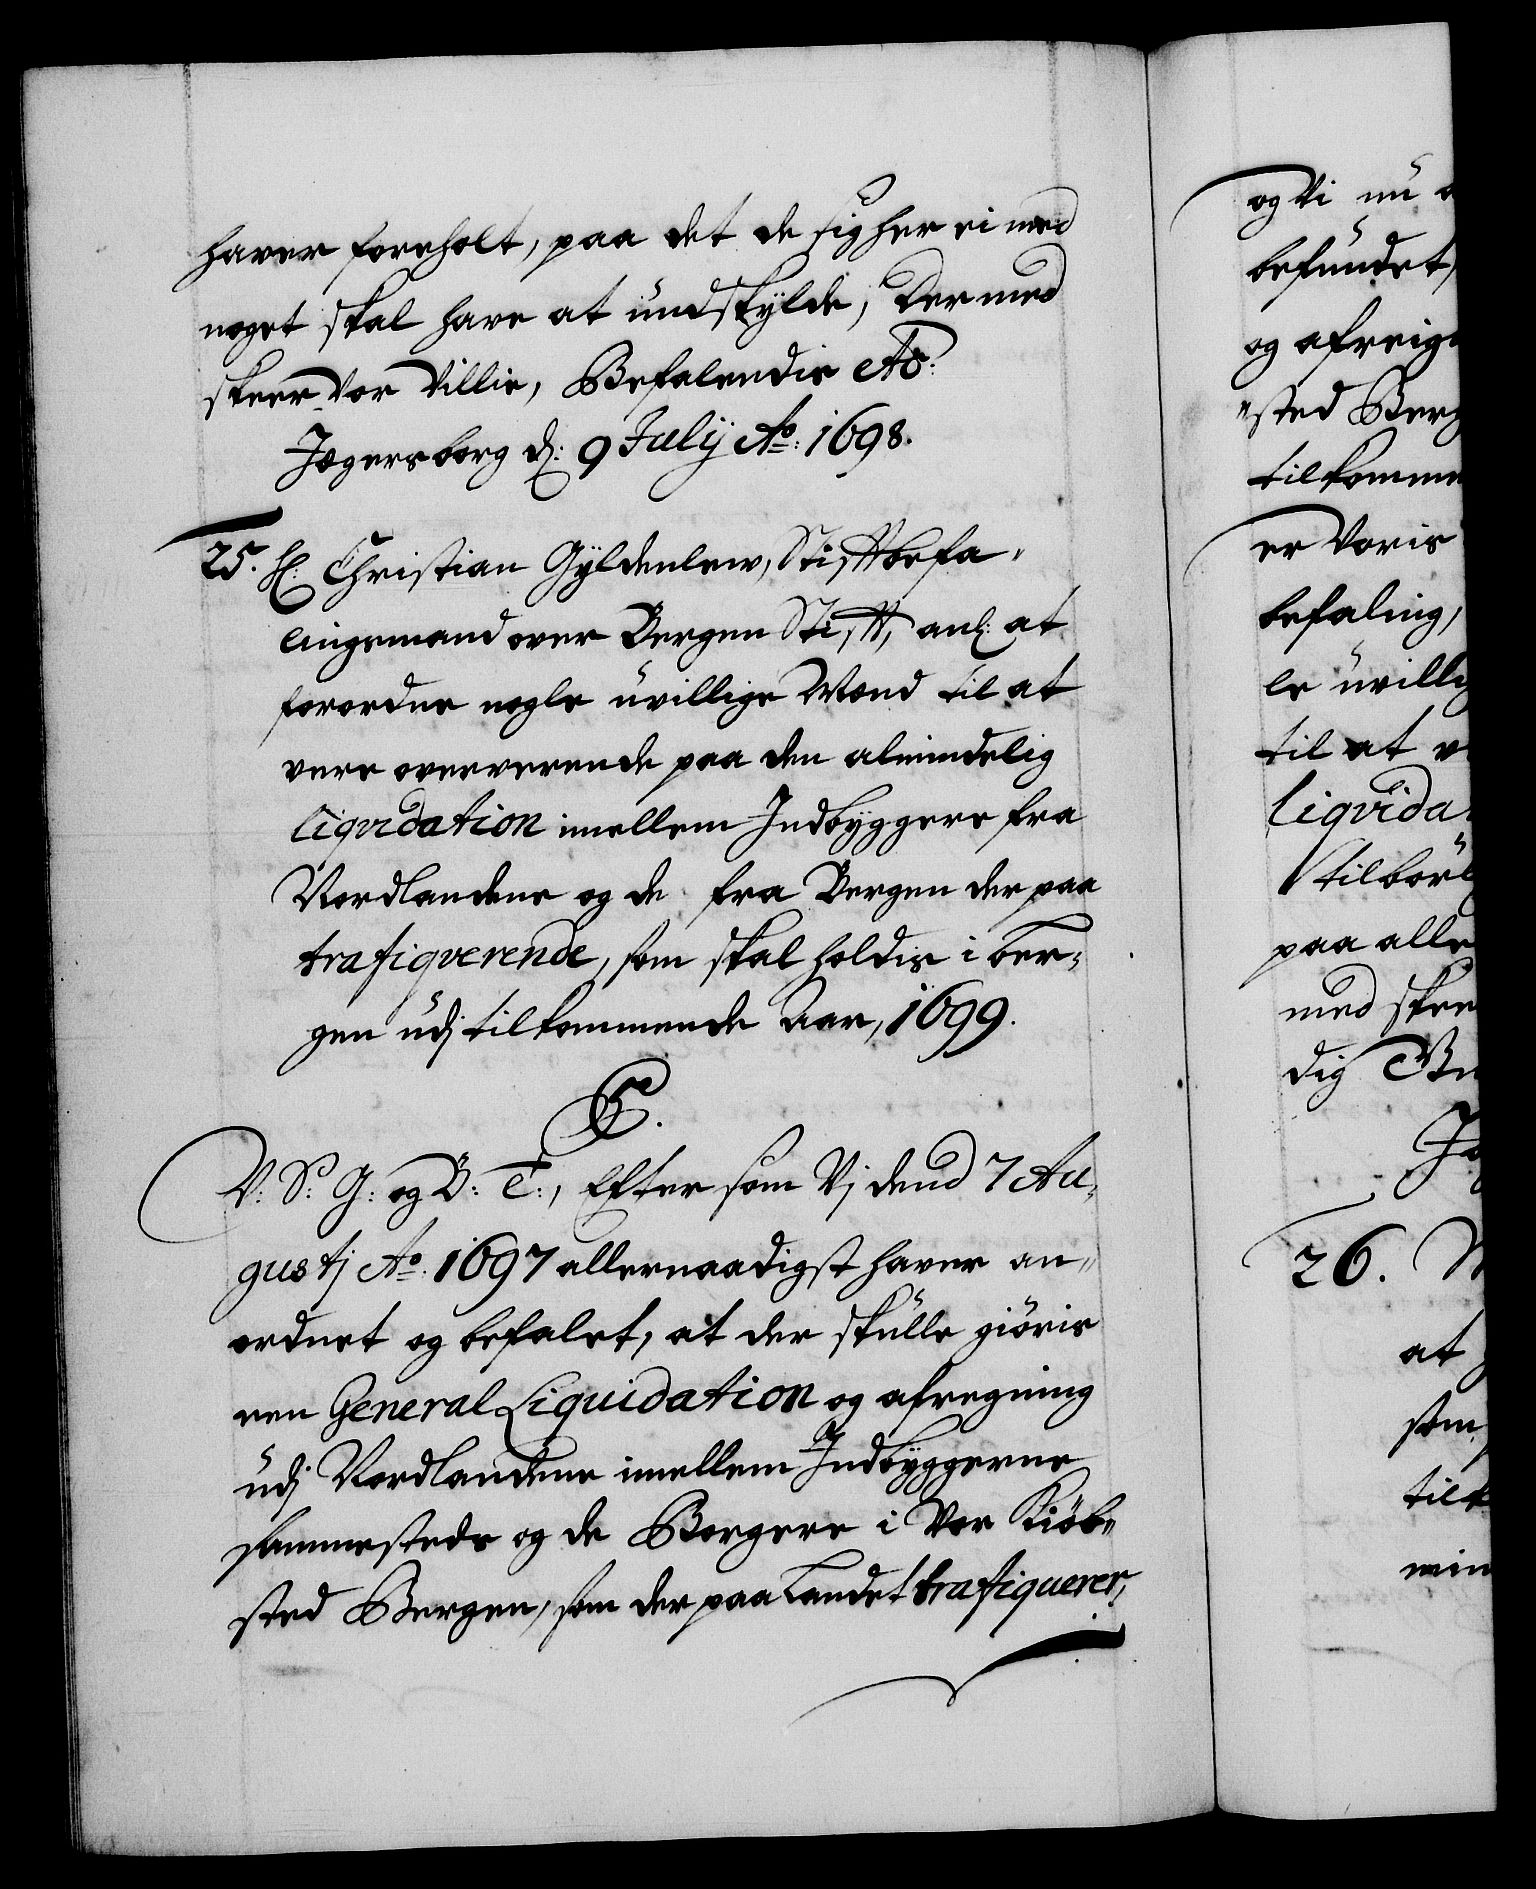 haver foreholt, paa det de sig her ei med
noget skal have at undskylde, Der med
skeer Vor Villie, Befalendis etc:
Jegersborg d: 9 Julij Ao: 1698.
25. H: Christian Gyldenlew, Stiftbefa-
lingsmand over Bergen Stift, anl: at
forordne nogle uvillige Mænd til at
vere oververende paa den almindelig
liqvidation imellem Indbyggere fra
Nordlandene og de fra Bergen der paa
trafiqverende, som skal holdis i Ber-
gen udj tilkommende Aar, 1699.
C5.
V: S: G: og B: T:, Efter som Vj dend 7 Au-
gustj Ao. 1697 allernaadigst haver an-
ordnet og befalet, at der skulle giöris
een General Liquidation og afregning
udj Nordlandene imellem Indbyggerne
sammesteds og de Borgere i Vor Kiöb-
sted Bergen, som der paa Landet trafiquerer,
og Vi nu
befundet,
og afreig
sted Berg
tilkomme
er Voris
befaling,
le uvillig
til at v
liqvida
tilbörl
paa alle
med skee
dig
26.
at
som
tilk
min